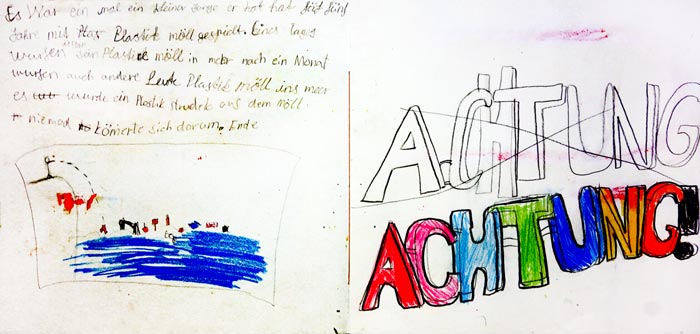 Es War ein mal ein kleiner junge er hat hat fünf
Jahre mit Plastick möll gespielt. Eines tages
wurfen sein Plastick möll in meer nach ein Monat
wurfen auch andere Leute Plastik möll ins meer
es wurde ein Plastik strudel aus dem Möll.
niemad kömerte sich darum. Ende
ACHTUNG
ACHTUNG!!